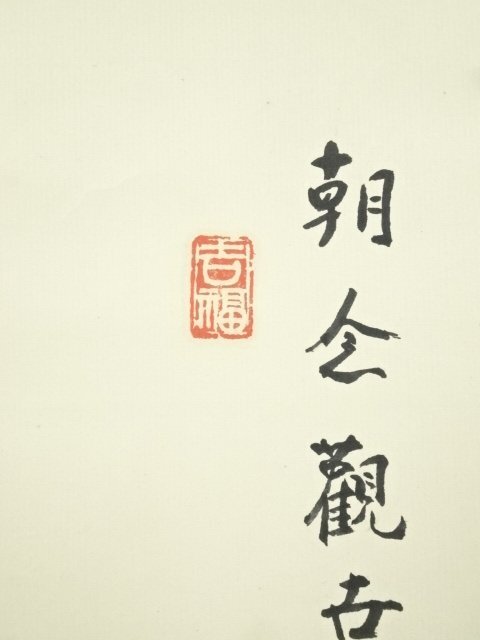 朝念觀世
吉福